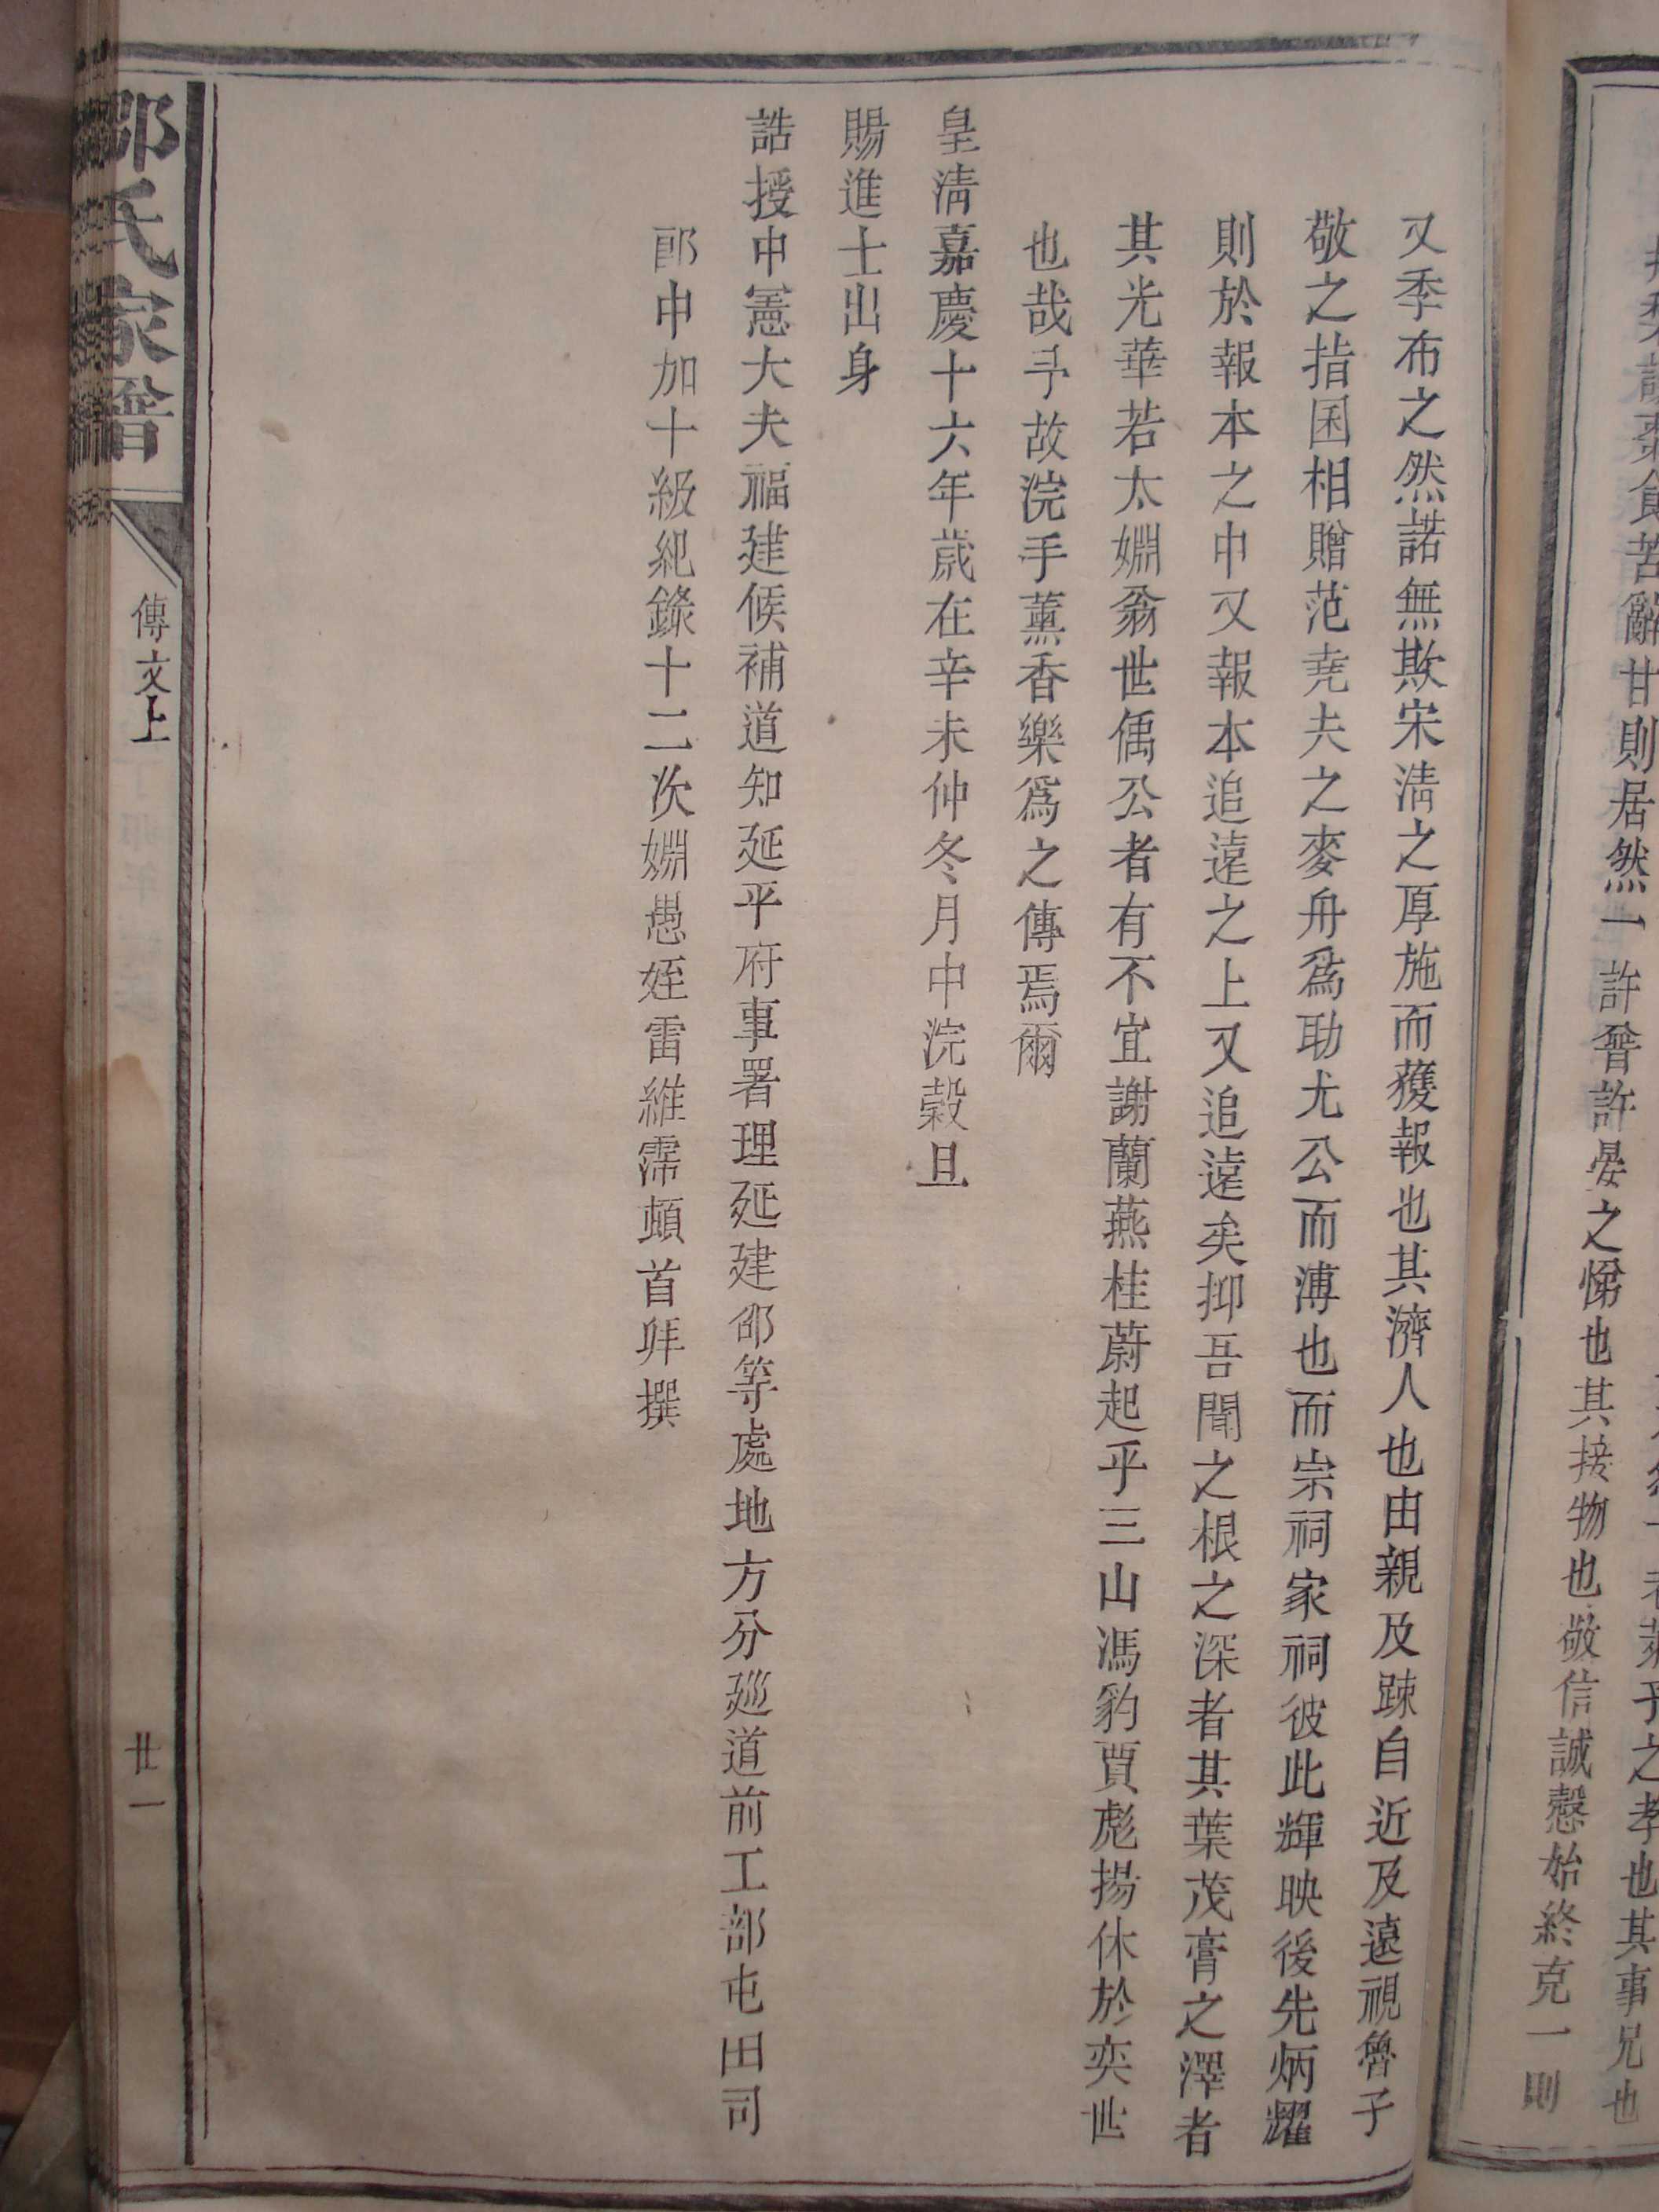 也其事兄也
苦辭甘則居然一許晉許晏之悌也其接物也敬信誠慤始終克一則
又季布之然諾無欺宋清之厚施而獲報也其濟人也由親及踈自近及遠視魯子
敬之指囷相贈范尭夫之麥舟爲助尤公而溥也而宗祠家祠彼此輝映後先炳耀
則於報本之中又報本追遠之上又追遠矣抑吾聞之根之深者其葉茂膏之澤者
其光華若太婣翁世偊公者有不宜謝蘭燕桂蔚起乎三山馮豹賈彪揚休於奕世
也哉予故浣手薰香樂爲之傳焉爾
皇清嘉慶十六年歲在辛未仲冬月中浣穀旦
賜進士出身
誥授中憲大夫福建候補道知延平府事署理延建邵等處地方分廵道前工部屯田司
郎中加十級紀錄十二次婣愚姪雷維霈頓首拜撰
鄒氏家譜
傳文上
廿一